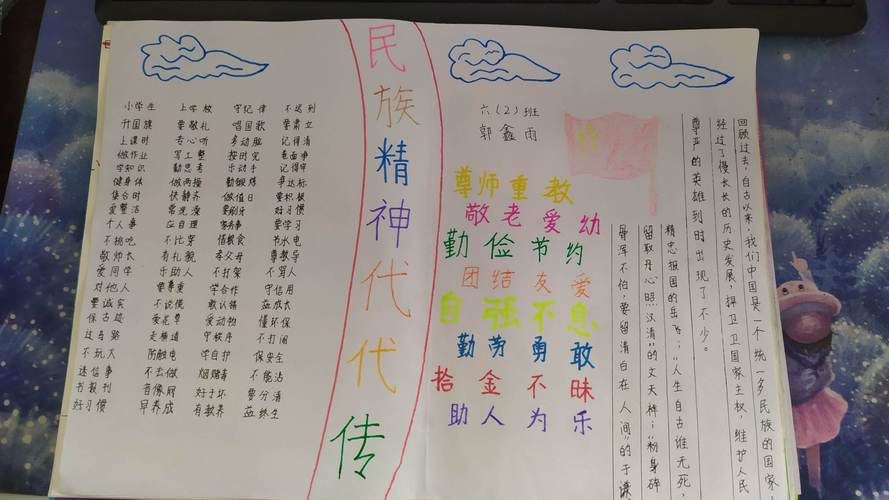 民族精神代代传
小学生 上学校 守纪律 不迟到
升国旗 要敬礼 唱国歌 要肃立
上课时 专心听 多动脑 记得清
做作业 写工整 按时完 卷面净
学知识 勤思考 乐动手 记得牢
健身体 做两操 勤锻炼 争达标
集合时 快静齐 做值日 要积极
爱整洁 常洗澡 要刷牙 好习惯
个人事 应自理 家务事 要学习
不挑吃 不比穿 惜粮食 节水电
敬师长 有礼貌 孝父母 尊教导
爱同学 乐助人 不打架 不骂人
对他人 要尊重 学合作 守信用
要诚实 不说慌 敢认错 益成长
保古迹 爱花草 爱动物 懂环保
过马路 走横道 守秩序 不打闹
不玩火 防触电 学自护 保安全
迷信事 不去做 烟赌毒 不能沾
书报刊 音像网 好于坏 要分清
好习惯 早养成 有教养 益终生
六（2）班
郭鑫雨
尊师重教
敬老爱幼
勤俭节约
团结友爱
自强不息
勤劳勇敢
拾金不昧
助人为乐
回顾过去，自古以来，我们中国是一个统一多民族的国家
经过了慢长长的历史发展，捍卫卫国家主权，维护人民
尊严的英雄到时出现了不少。
精忠报国的岳飞；“人生自古谁无死，
留取丹心照汉清”的文天祥；“粉身碎
骨浑不怕，要留清白在人间”的于谦